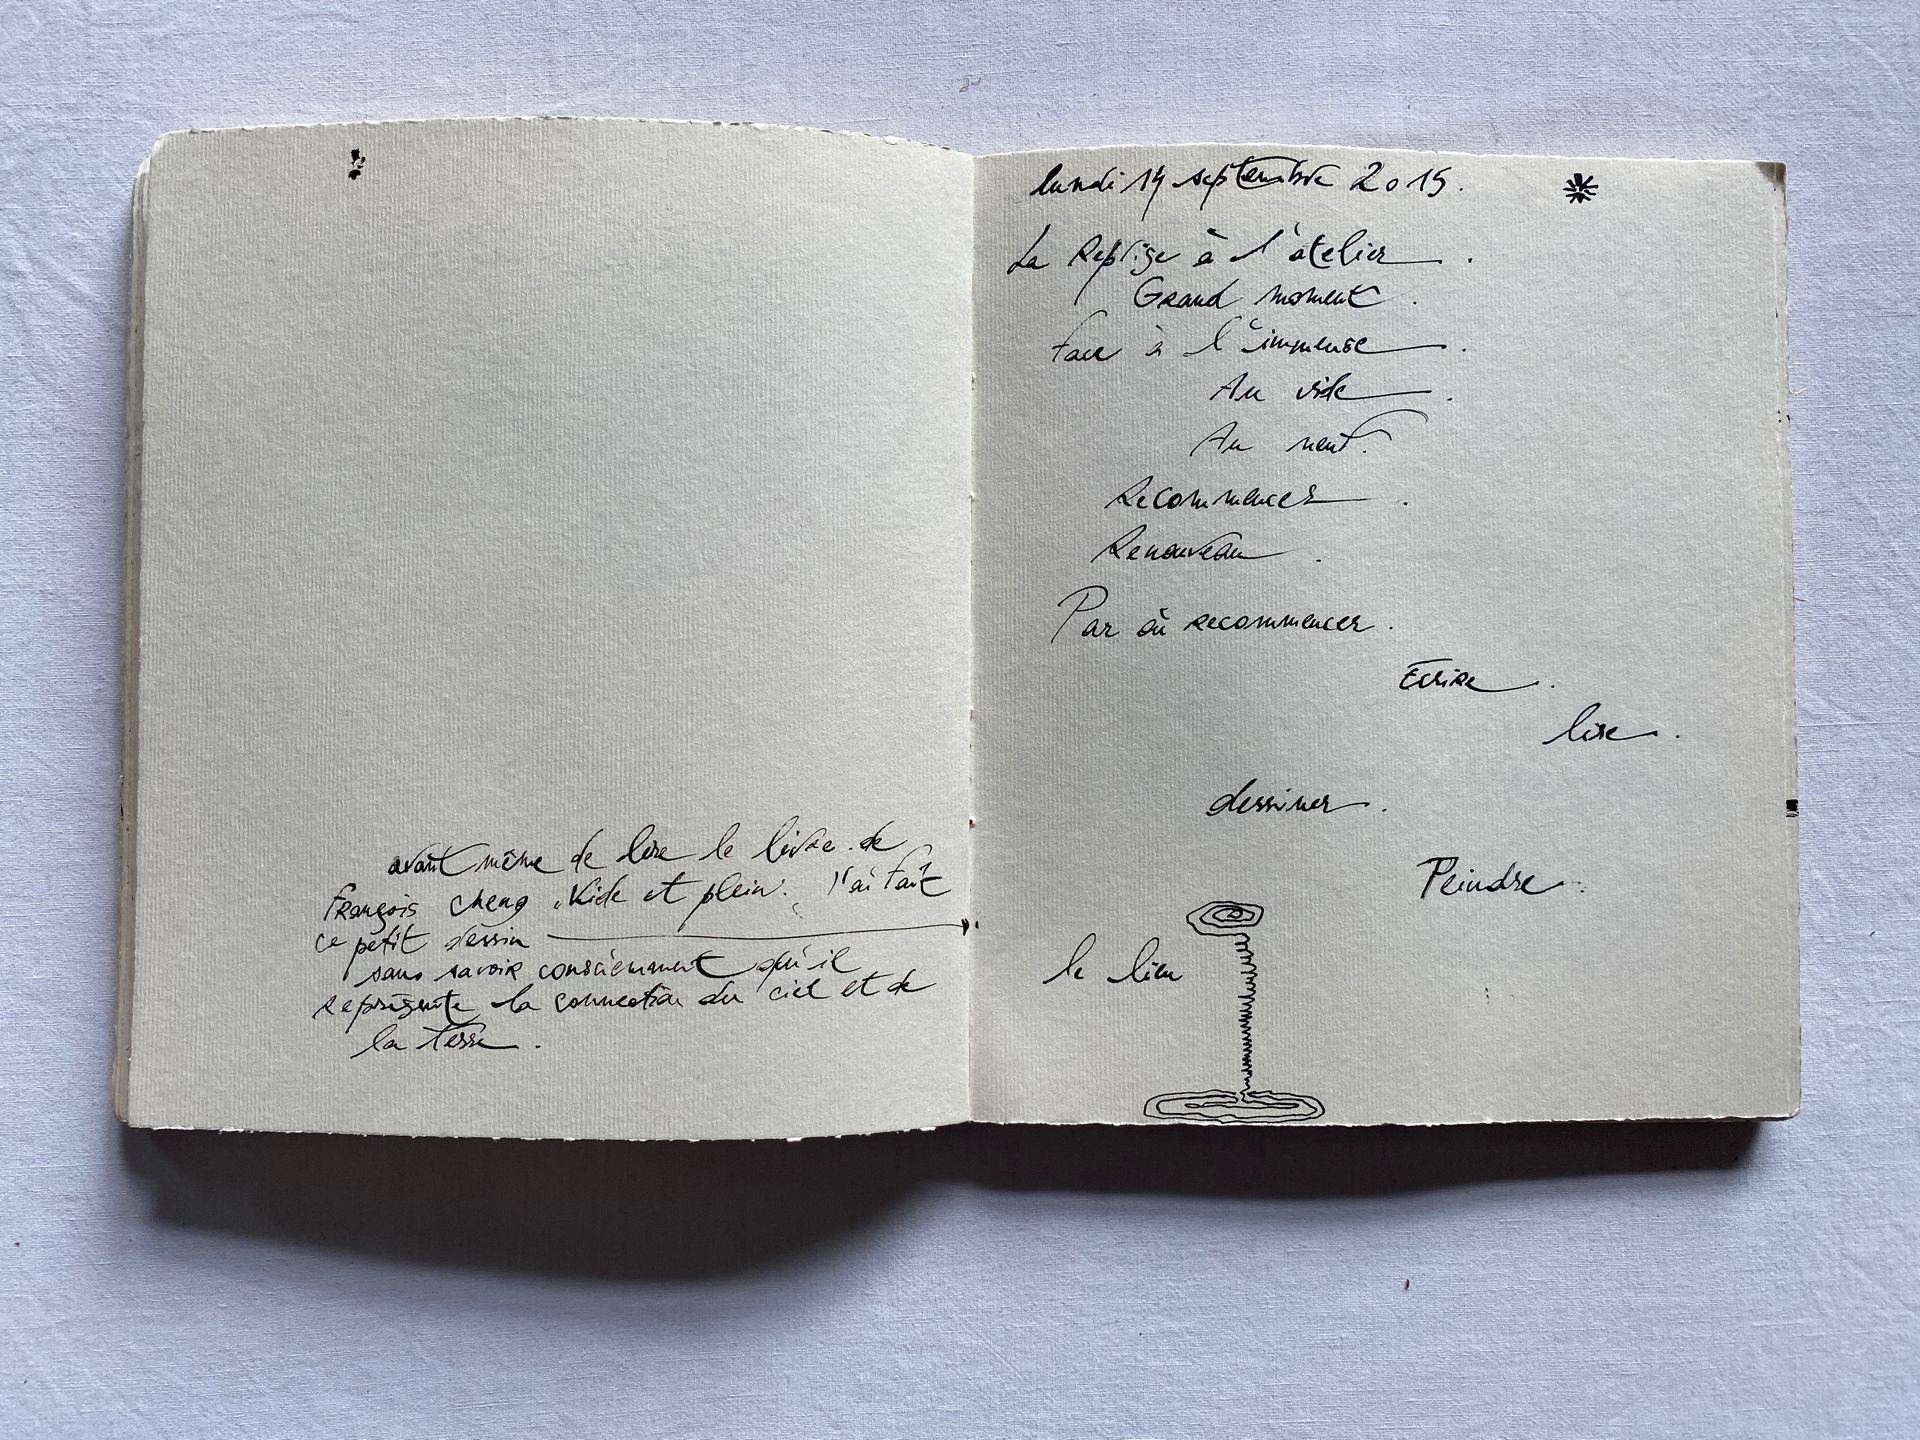 avant même de lire le livre de
François Cheng "Vide et plein". J'ai fait
ce petit dessin
sans savoir consciemment qu'il
représente la connection du ciel et de
la terre.
lundi 14 septembre 2015.
La Reprise à l'atelier.
Grand moment.
face à l'immense.
Au vide.
Au neuf.
Recommencer.
Renouveau.
Par où recommencer.
Ecrire.
lire.
dessiner.
Peindre.
le lieu